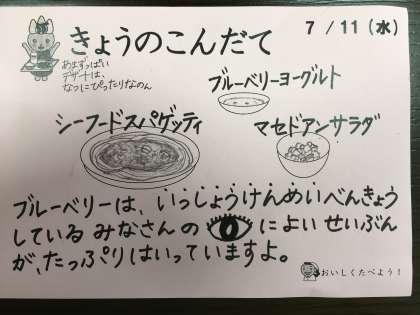 きょうのこんだて
7 / 11 (水)
あまずっぱい
デザートは、
なつにぴったりなのん
ブルーベリーヨーグルト
シーフードスパゲッティ
マセドアンサラダ
ブルーベリーは、いっしょうけんめいべんきょう
しているみなさんの
によいせいぶん
が、たっぷりはいっていますよ。
おいしくたべよう!